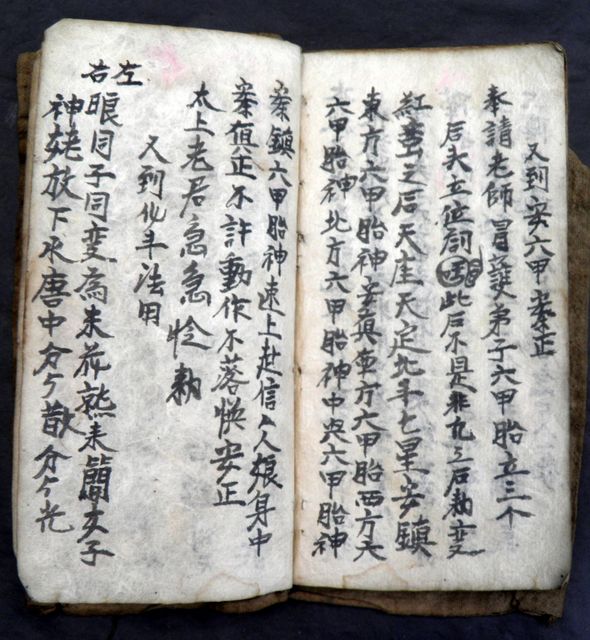 又到安六甲䅁正
奉請老師冒發弟子六甲胎立三个
后夫立位 此后不是非凡之后勅变
紅 之后天生天定北斗七星安鎮
東方六甲胎神安真南方六甲胎西方夫
六甲胎神北方六甲胎神中央六甲胎神
安鎮六甲胎神速上赴信人娘身中
安真正不許動作不落 安正
太上老君急急 勅
又到化半法用
左右眼同子同变為未 熟未 子
神 放下水唐中分ケ散分ケ光